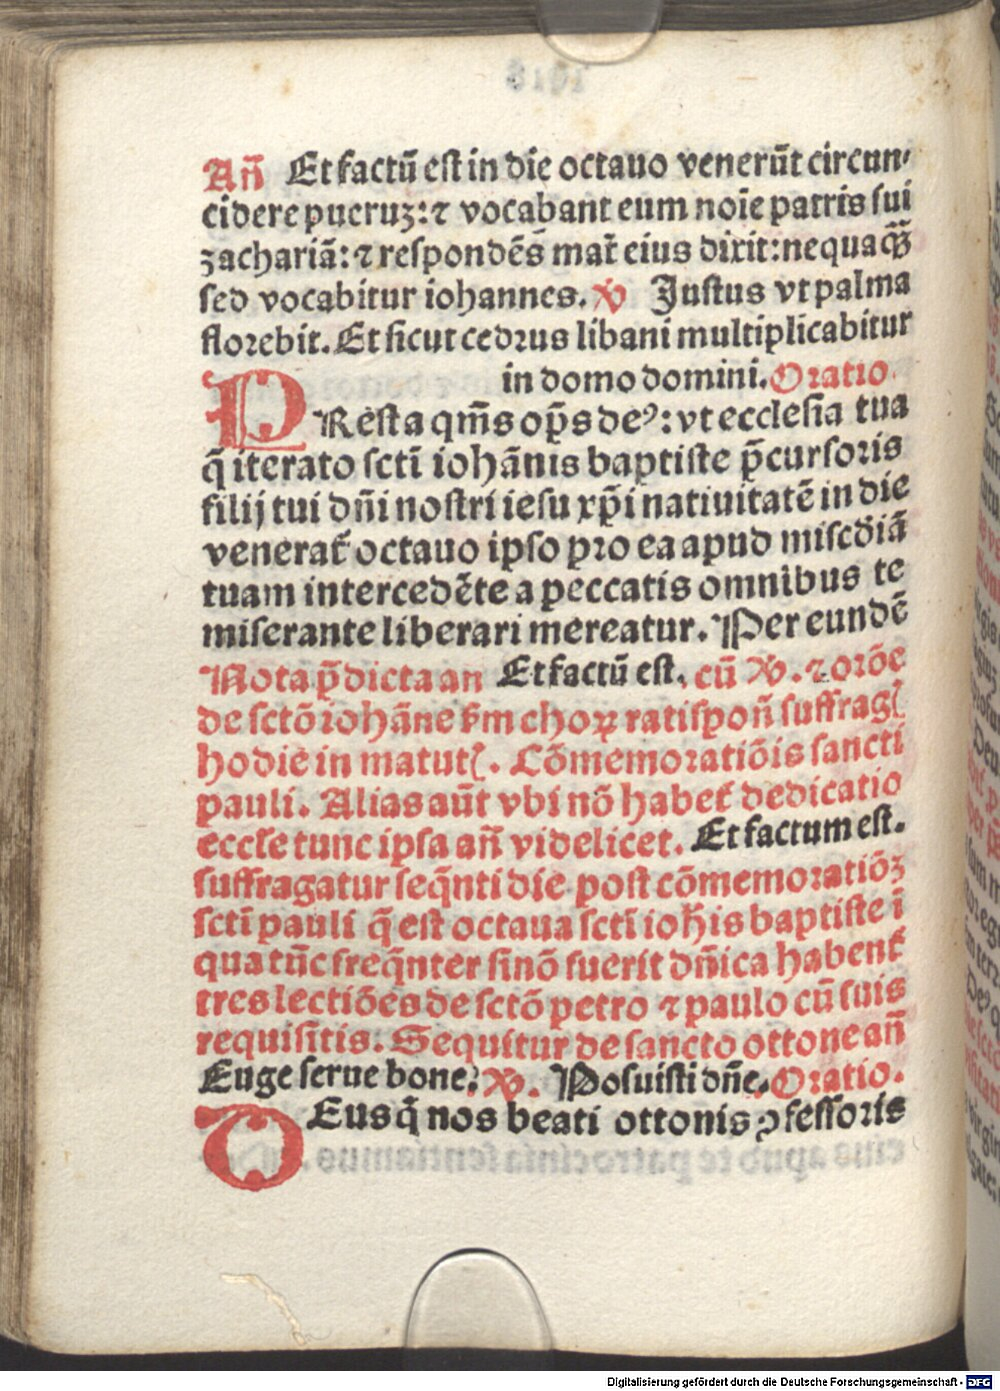 Añ Et factū est in die octauo venerūt circun⸗
cidere pueruʒ: ⁊ vocabant eum noīe patris sui
zachariā: ⁊ respondēs mat̄ eius dixit: nequaq̄ʒ
sed vocabitur iohannes. ℣ Justus vt palma
florebit. Et sicut cedrus libani multiplicabitur
in domo domini. Oratio.
PResta qm̄s op̄s deꝰ: vt ecclesia tua
q̄ iterato sctī iohānis baptiste p̄cursoris
filij tui dñi nostri iesu xp̄i natiuitatē in die
venerat̄ octauo ipso pro ea apud miscdiā
tuam intercedēte a peccatis omnibus te
miserante liberari mereatur. Per eundē
Nota p̄dicta an Et factū est. cū ℣. ⁊ orōe
de sctō iohāne s̄m choꝝ ratispoñ suffrag
hodie in matut. Cōmemoratiōis sancti
pauli. Alias aūt vbi nō habet̄ dedicatio
eccl̄e tunc ipsa añ videlicet. Et factum est.
suffragatur seq̄nti die post cōmemoratiōʒ
sctī pauli q̄ est octaua sctī ioh̄is baptiste ī
qua tūc freq̄nter sinō fuerit dñica habent̄
tres lectiōes de sctō petro ⁊ paulo cū suis
requisitis. Sequitur de sancto ottone añ
Euge serue bone: ℣. Posuisti dñe. Oratio.
DEus q̄ nos beati ottonis ꝯfessoris
Digitalisierung gefördert durch die Deutsche Forschungsgemeinschaft - DFG